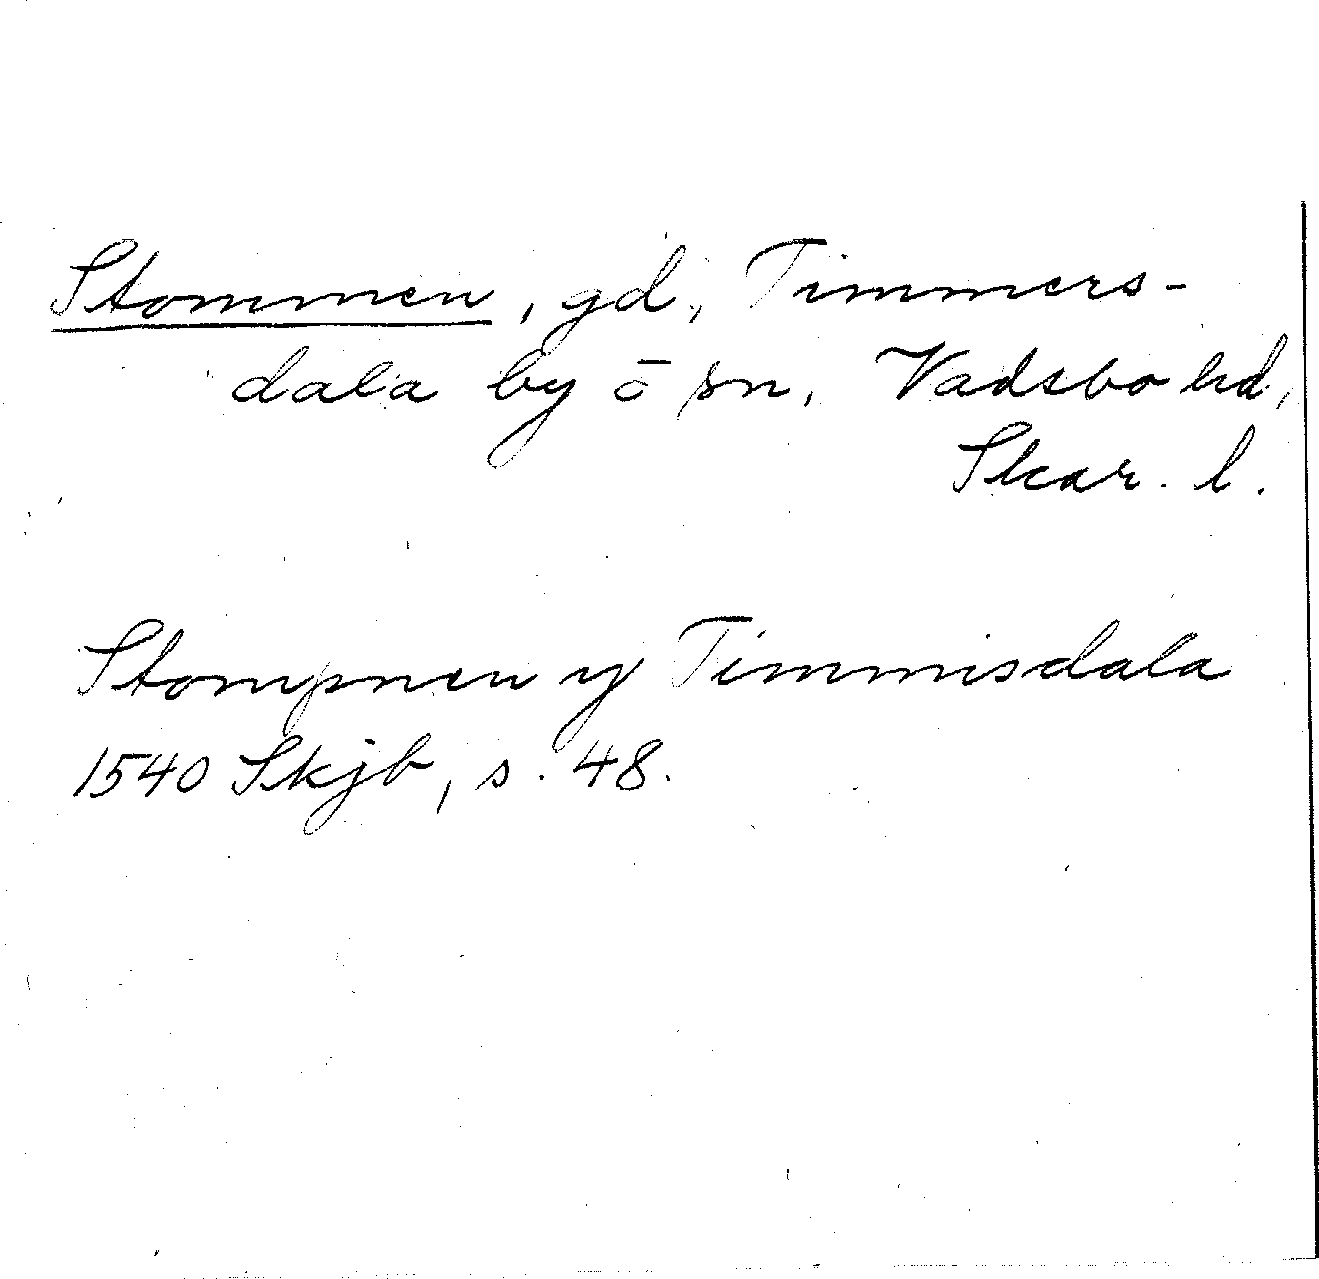 Stommen, gd, Timmers-
dala by o sn, Vadsbo hd,
Skar. l.
Stompnen y Timmisdala
1540 Skjb, s. 48.